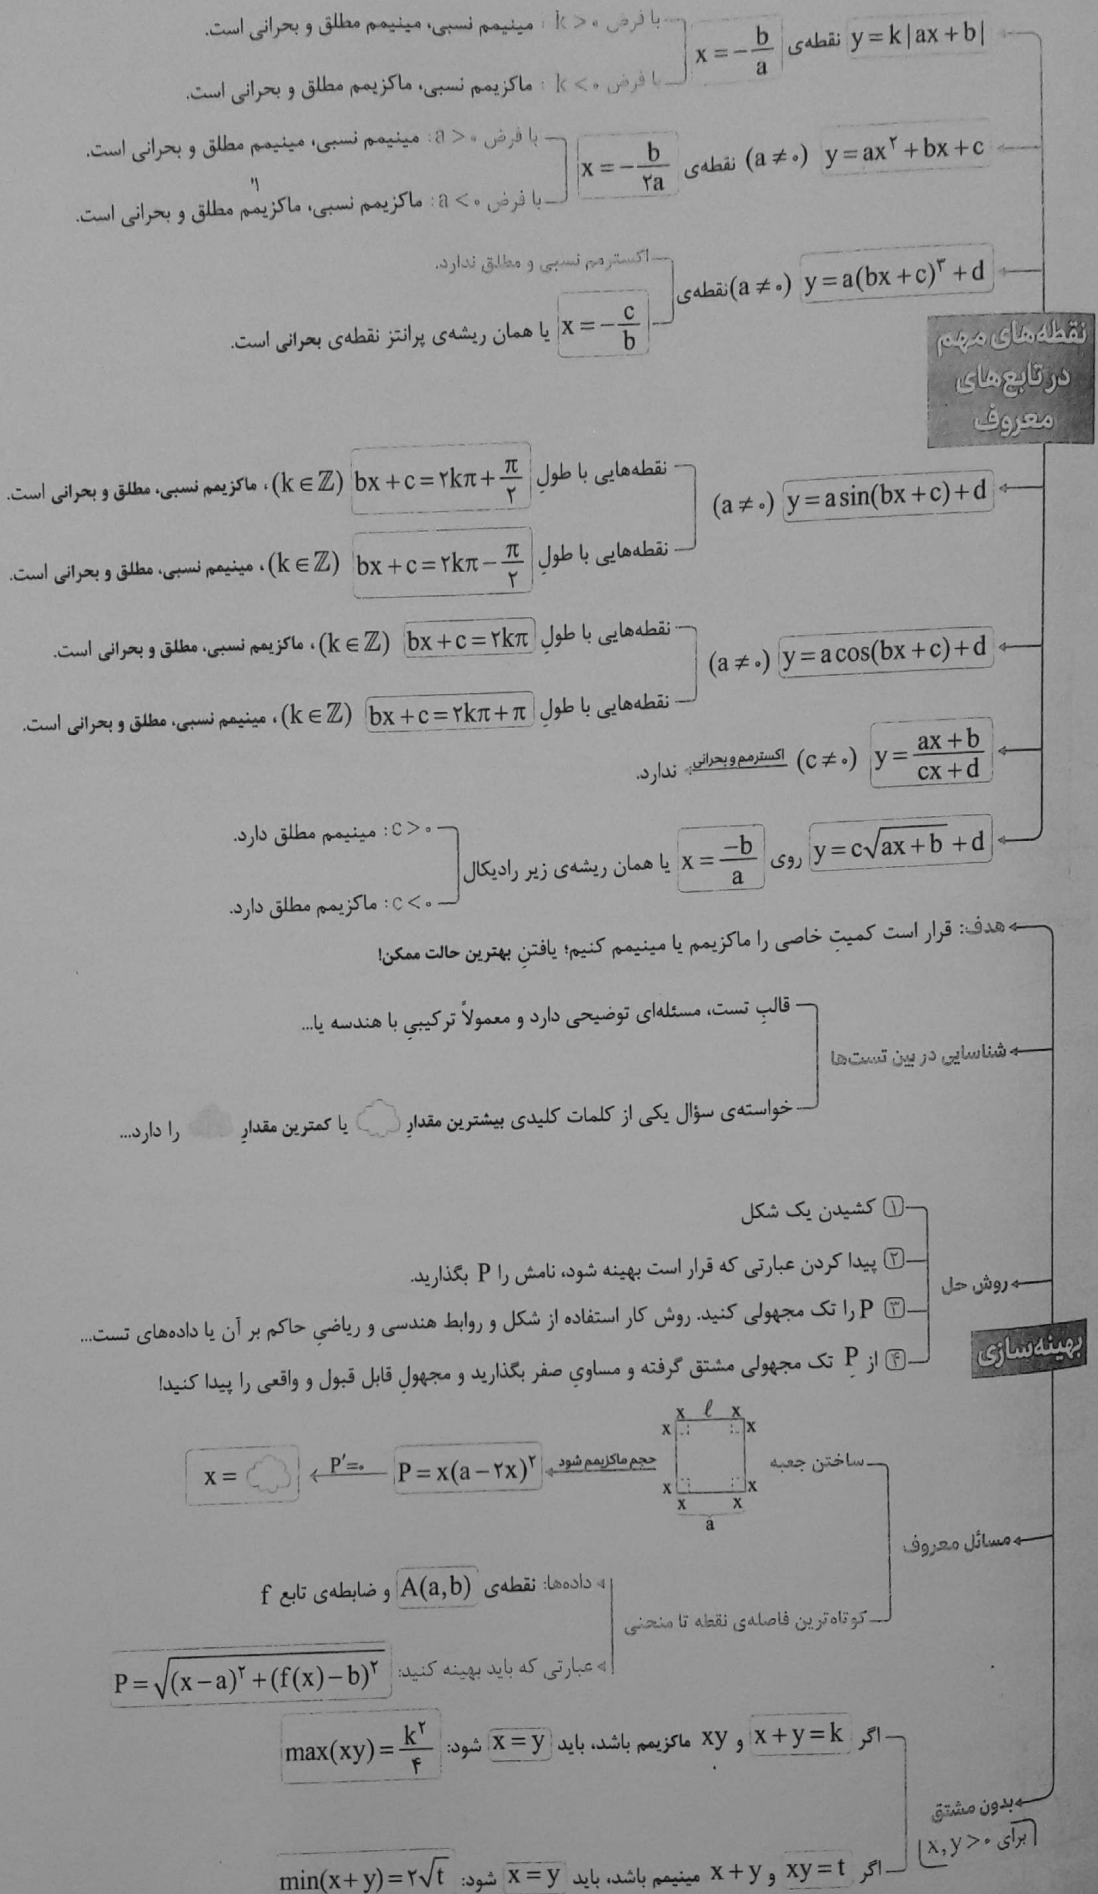 نقطه‌های مهم
در تابع‌های
معروف
y = k|ax + b| نقطه‌ی x = -b/a
با فرض k > ۰ : مینیمم نسبی، مینیمم مطلق و بحرانی است.
با فرض k < ۰ : ماکزیمم نسبی، ماکزیمم مطلق و بحرانی است.
y = ax² + bx + c (a ≠ ۰) نقطه‌ی x = -b/۲a
با فرض a > ۰ : مینیمم نسبی، مینیمم مطلق و بحرانی است.
با فرض a < ۰ : ماکزیمم نسبی، ماکزیمم مطلق و بحرانی است.
y = a(bx + c)³ + d (a ≠ ۰) نقطه‌ی
اکسترمم نسبی و مطلق ندارد.
x = -c/b یا همان ریشه‌ی پرانتز نقطه‌ی بحرانی است.
y = a sin(bx + c) + d (a ≠ ۰)
نقطه‌هایی با طولِ bx + c = ۲kπ + π/۲ (k ∈ ℤ)، ماکزیمم نسبی، مطلق و بحرانی است.
نقطه‌هایی با طولِ bx + c = ۲kπ - π/۲ (k ∈ ℤ)، مینیمم نسبی، مطلق و بحرانی است.
y = a cos(bx + c) + d (a ≠ ۰)
نقطه‌هایی با طولِ bx + c = ۲kπ (k ∈ ℤ)، ماکزیمم نسبی، مطلق و بحرانی است.
نقطه‌هایی با طولِ bx + c = ۲kπ + π (k ∈ ℤ)، مینیمم نسبی، مطلق و بحرانی است.
y = (ax + b)/(cx + d) (c ≠ ۰) اکسترمم و بحرانی ندارد.
y = c√(ax + b) + d روی x = -b/a یا همان ریشه‌ی زیر رادیکال
c > ۰ : مینیمم مطلق دارد.
c < ۰ : ماکزیمم مطلق دارد.
بهینه‌سازی
هدف: قرار است کمیتِ خاصی را ماکزیمم یا مینیمم کنیم؛ یافتنِ بهترین حالت ممکن!
شناسایی در بین تست‌ها
قالبِ تست، مسئله‌ای توضیحی دارد و معمولاً ترکیبیِ با هندسه یا...
خواسته‌ی سؤال یکی از کلمات کلیدی بیشترین مقدارِ یا کمترین مقدارِ را دارد...
روش حل
۱ کشیدن یک شکل
۲ پیدا کردن عبارتی که قرار است بهینه شود، نامش را P بگذارید.
۳ P را تک مجهولی کنید. روش کار استفاده از شکل و روابط هندسی و ریاضیِ حاکم بر آن یا داده‌های تست...
۴ از P تک مجهولی مشتق گرفته و مساویِ صفر بگذارید و مجهولِ قابل قبول و واقعی را پیدا کنید!
مسائل معروف
ساختن جعبه
x ℓ x
x x
x x
x x
a
حجم ماکزیمم شود P = x(a - ۲x)² P' = ۰ x =
کوتاه‌ترین فاصله‌ی نقطه تا منحنی
داده‌ها: نقطه‌ی A(a, b) و ضابطه‌ی تابع f
عبارتی که باید بهینه کنید: P = √((x - a)² + (f(x) - b)²)
بدون مشتق
برای x, y > ۰
اگر x + y = k و xy ماکزیمم باشد، باید x = y شود: max(xy) = k²/۴
اگر xy = t و x + y مینیمم باشد، باید x = y شود: min(x + y) = ۲√t